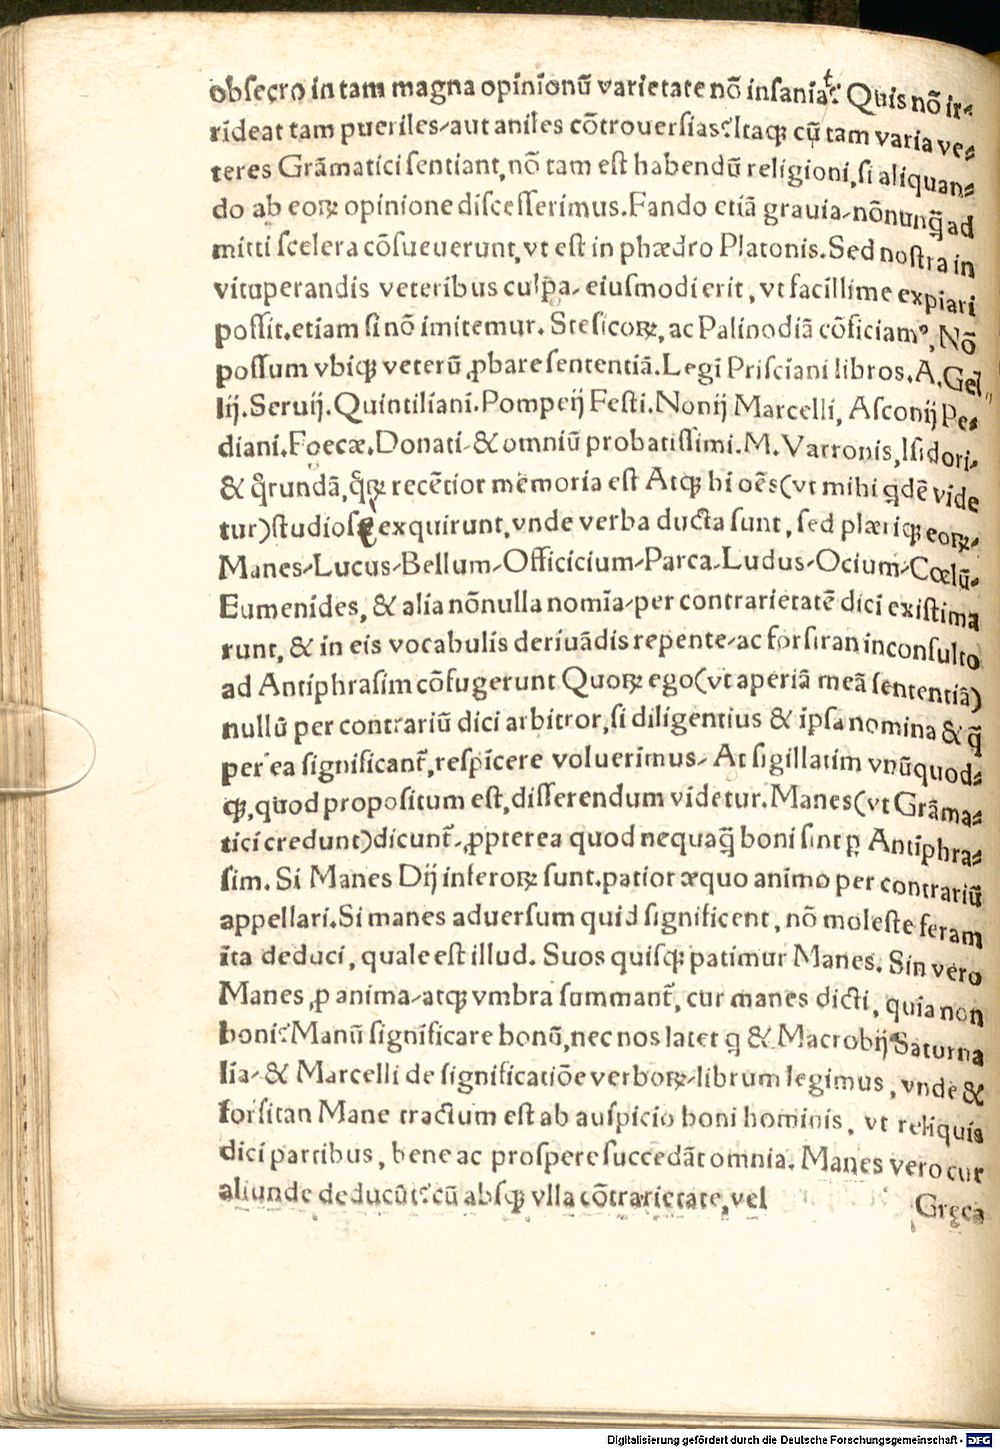 obſecro in tam magna opinionū varietate nō inſaniaꝰt? Quis nō ir⸗
rideat tam pueriles⸗aut aniles cōtrouerſias? Itaqꝫ cū tam varia ve⸗
teres Grāmatici ſentiant, nō tam eſt habendū religioni, ſi aliquan⸗
do ab eoꝝ opinione diſceſſerimus. Fando etiā grauia⸗nōnunq̄ ad
mitti ſcelera cōſueuerunt, vt eſt in phædro Platonis. Sed noſtra in
vituperandis veteribus culpa⸗ eiuſmodi erit, vt facillime expiari
poſſit. etiam ſi nō imitemur. Steſicoꝝ, ac Palinodiā cōficiamꝰ, Nō
poſſum vbiqꝫ veterū ꝓbare ſententiā. Legi Priſciani libros. A. Gel
lij. Seruij. Quintiliani. Pompeij Feſti. Nonij Marcelli, Aſconij Pe⸗
diani. Foecæ. Donati⸗ & omniū probatiſſimi. M. Varronis, Iſidori⸗
& q̊rundā, q̊ꝝ recētior memoria eſt Atqꝫ hi oēs (vt mihi qdē vide
tur) ſtudioſe exquirunt, vnde verba ducta ſunt, ſed plæriqꝫ eoꝝ⸗
Manes⸗Lucus⸗Bellum⸗Officicium⸗Parca⸗Ludus⸗Ocium⸗Cœlū⸗
Eumenides, & alia nōnulla nomīa⸗per contrarietatē dici exiſtima
runt, & in eis vocabulis deriuādis repente⸗ac forſitan inconſulto
ad Antiphraſim cōfugerunt Quoꝝ ego (vt aperiā meā ſententiā)
nullū per contrariū dici arbitror, ſi diligentius & ipſa nomina & q̄
per ea ſignificant̃, reſpicere voluerimus⸗ At ſigillatim vnūquod⸗
qꝫ, quod propoſitum eſt, diſſerendum videtur. Manes (vt Grāma⸗
tici credunt) dicunt̃⸗ ꝓpterea quod nequaq̄ boni ſint ꝑ Antiphra⸗
ſim. Si Manes Dij inferoꝝ ſunt. patior æquo animo per contrariū
appellari. Si manes aduerſum quid ſignificent, nō moleſte feram
īta deduci, quale eſt illud. Suos quiſqꝫ patimur Manes. Sin vero
Manes ꝓ anima⸗atqꝫ vmbra ſummant̃, cur manes dicti, quia non
boni? Manū ſignificare bonū, nec nos latet q & Macrobij Saturna
lia⸗ & Marcelli de ſignificatiōe verboꝝ⸗librum legimus, vnde &
forſitan Mane tractum eſt ab auſpicio boni hominis, vt reliquis
dici partibus, bene ac proſpere ſuccedāt omnia. Manes vero cur
aliunde deducūt? cū abſqꝫ vlla cōtrarietate, vel
Gręca
Digitalisierung gefördert durch die Deutsche Forschungsgemeinschaft - DFG